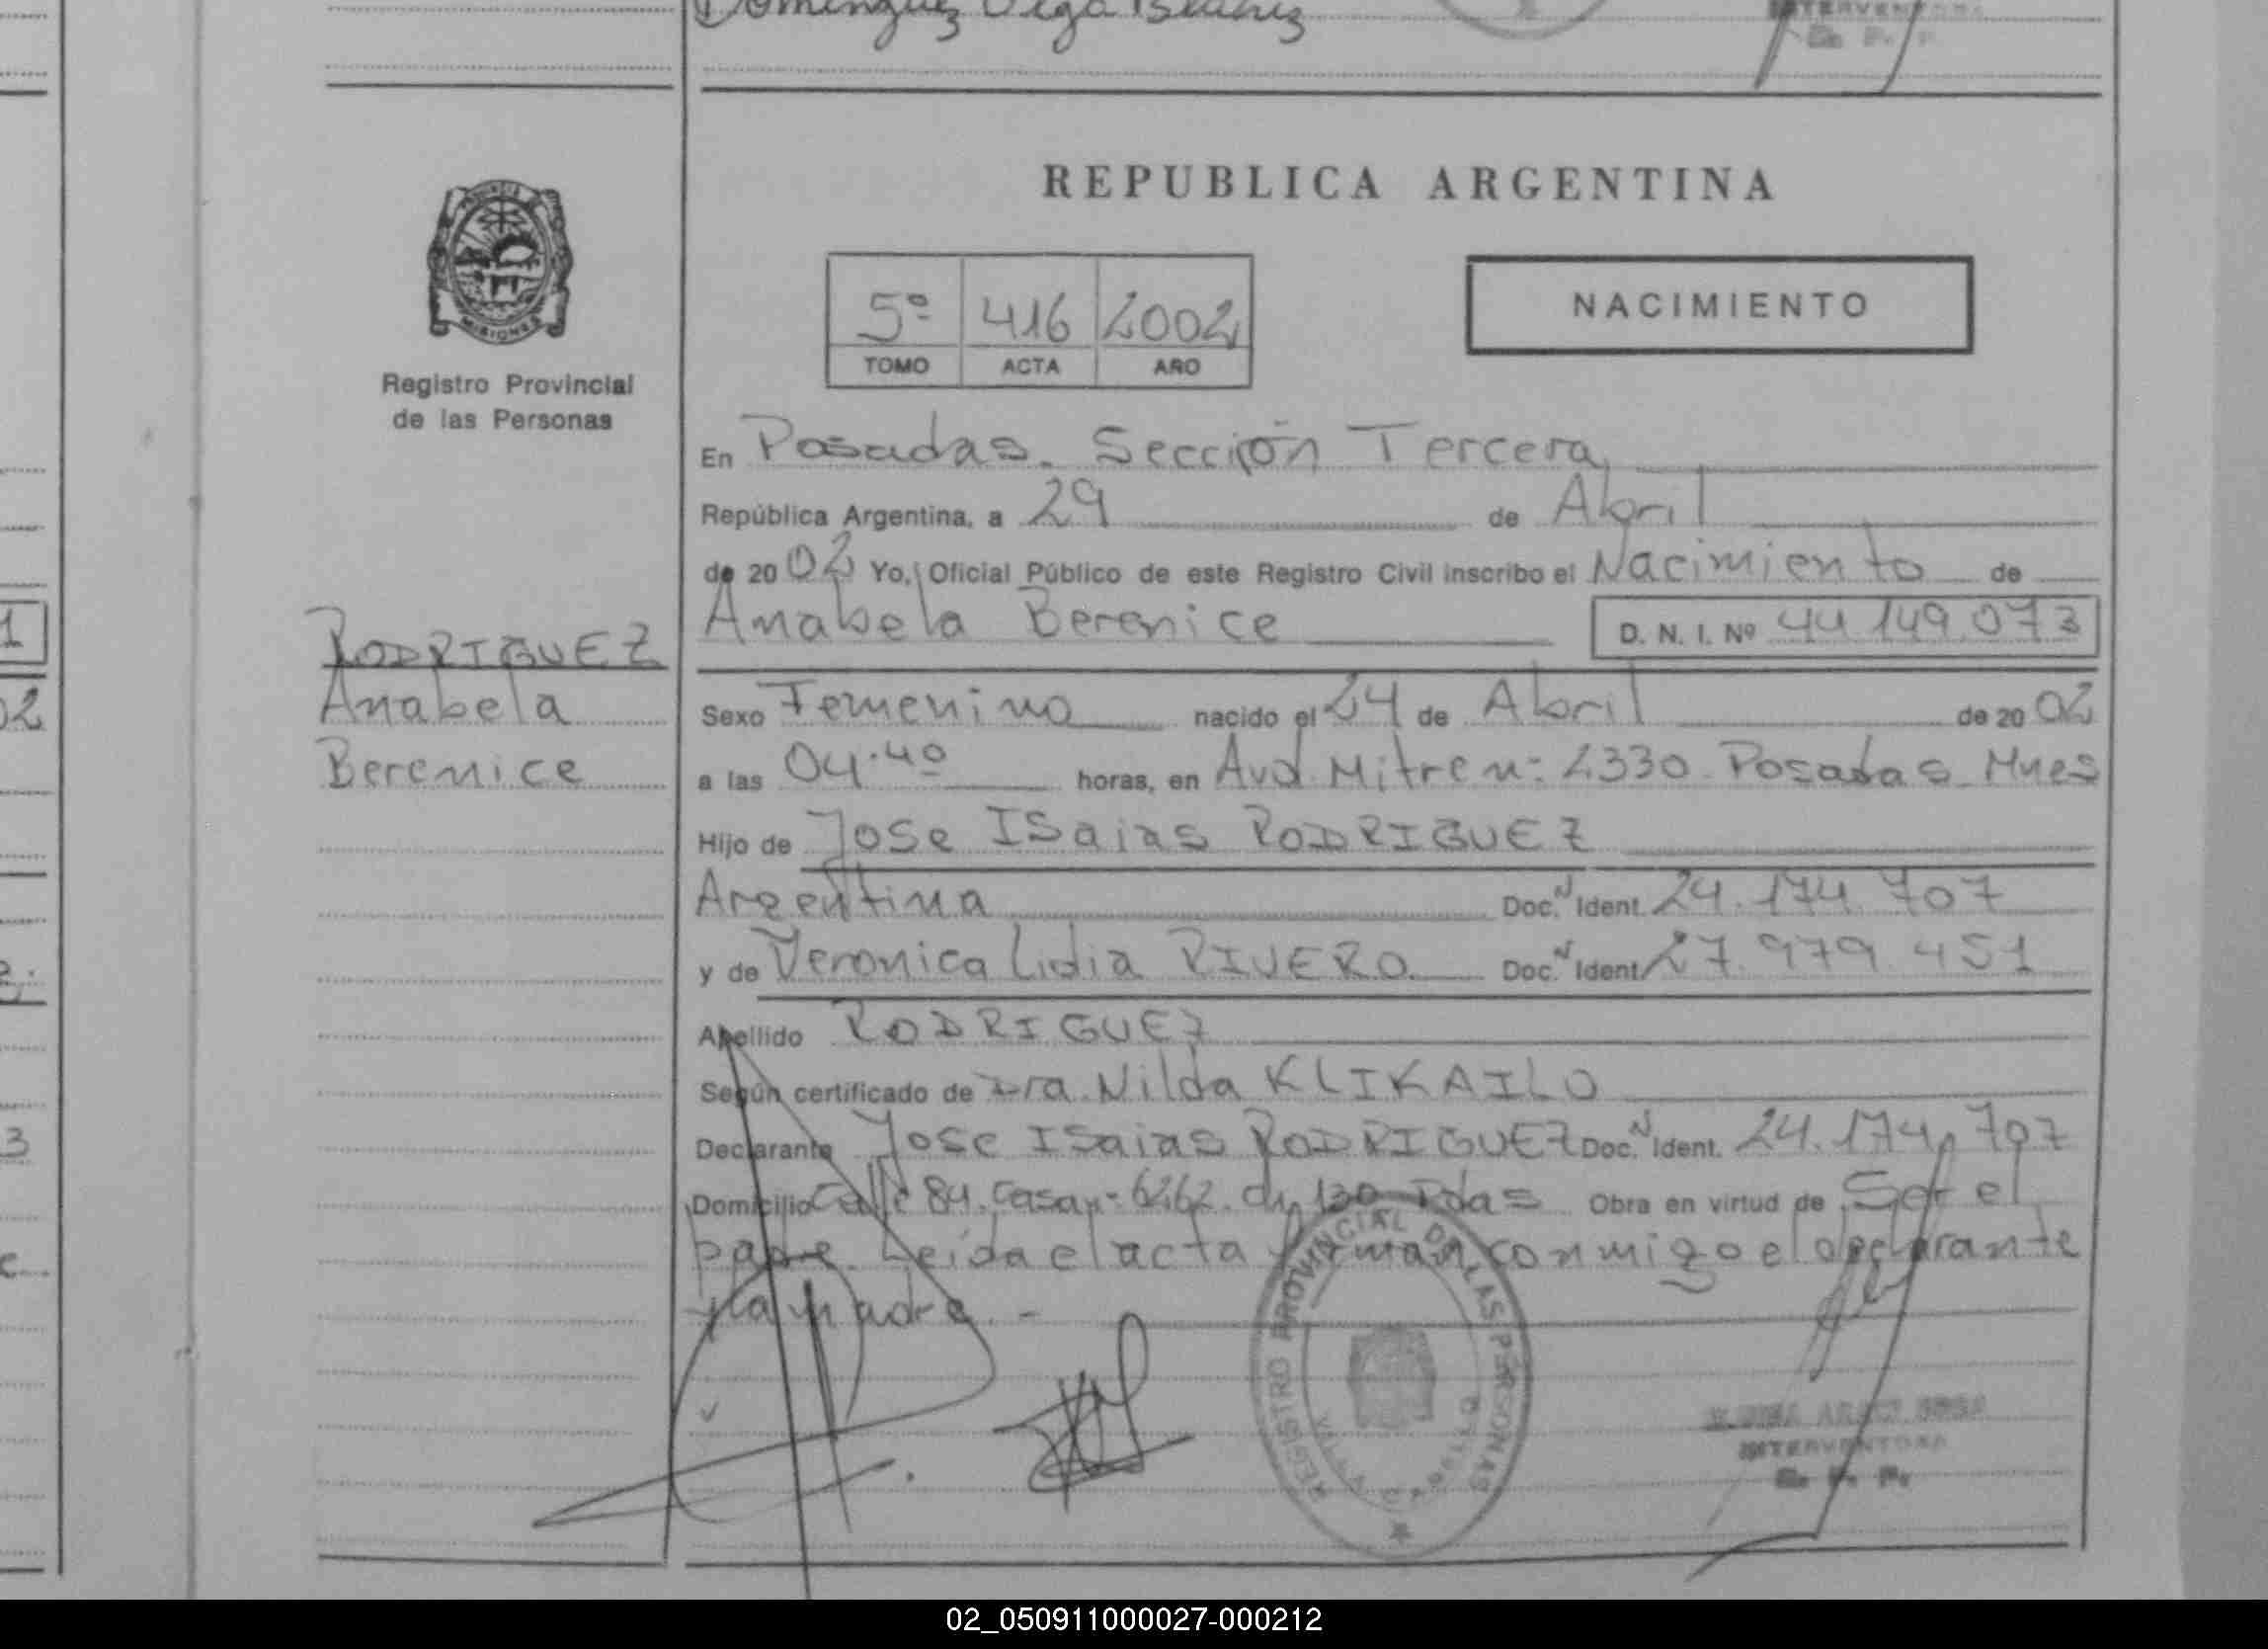 Dominguez Olga Beatriz
INTERVENTORA
R. P. P.
REPUBLICA ARGENTINA
MISIONES
Registro Provincial
de las Personas
5º 416 2002
TOMO ACTA AÑO
NACIMIENTO
En Posadas. Sección Tercera
República Argentina, a 29 de Abril
de 2002 Yo, Oficial Público de este Registro Civil inscribo el Nacimiento de
Anabela Berenice D. N. I. Nº 44 149.073
RODRIGUEZ
Anabela
Berenice
Sexo Femenino nacido el 24 de Abril de 2002
a las 04.40 horas, en Avd. Mitre nº 2330 Posadas Mnes
Hijo de Jose ISaias RODRIGUEZ
Argentina Doc. N Ident. 24.174.707
y de Veronica Lidia RIVERO. Doc. N Ident. 27.979.451
Apellido RODRIGUEZ
Según certificado de Dra. Nilda KLIKAILO
Declarante Jose ISaias RODRIGUEZ Doc. N Ident. 24.174.707
Domicilio Calle 84. Casa nº 6262. ch 130 Pdas Obra en virtud de Ser el
padre. Leida el acta firman conmigo el declarante
y la madre. -
REGISTRO PROVINCIAL DE LAS PERSONAS
INTERVENTORA
R. P. P.
1
02
3
02_050911000027-000212